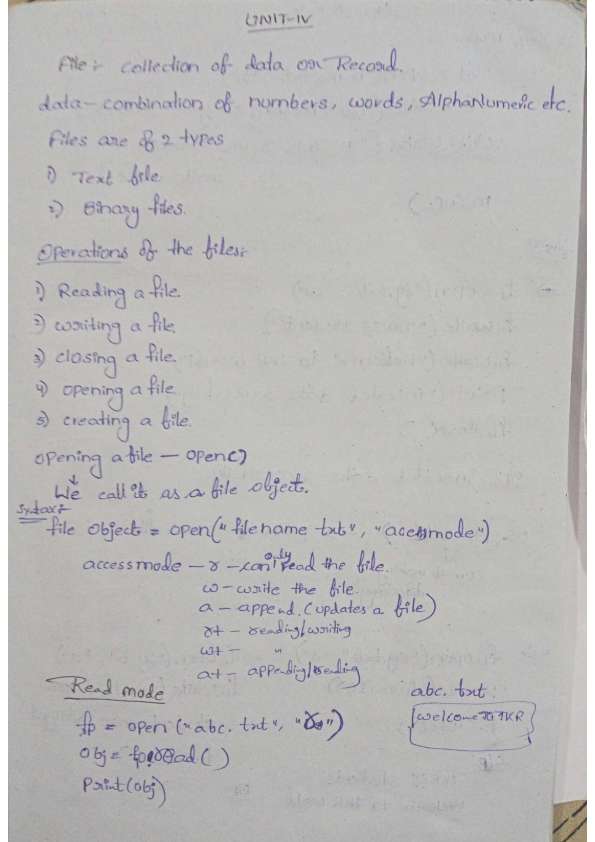 UNIT-IV
File:- collection of data or Record.
data - combination of numbers, words, AlphaNumeric etc.
Files are of 2 types
1) Text file
2) Binary files.
Operations of the files:-
1) Reading a file.
2) writing a file
3) closing a file.
4) opening a file
5) creating a file.
opening a file - open()
↓
We call it as a file object.
Syntax:-
file object = open("filename txt", "acessmode").
access mode - r - only read the file.
w - write the file.
a - append. (updates a file)
r+ - reading/writing
w+ - "
a+ - appending/reading
Read mode
abc. txt.
fp = open ("abc. txt", "r")
welcome TO TKR
Obj = fp.read ( )
Print(obj)